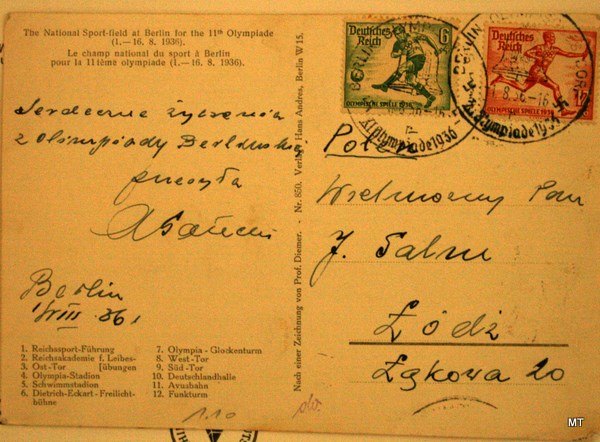 The National Sport-field at Berlin for the 11th Olympiade
(1.—16. 8. 1936).
Le champ national du sport à Berlin
pour la 11tème olympiade (1.—16. 8. 1936).
Serdeczne życzenia
z Olimpiady Berlińskiej
przesyła
Berlin
1/VIII. 36.
1. Reichssport-Führung
2. Reichsakademie f. Leibes-
3. Ost-Tor [übungen
4. Olympia-Stadion
5. Schwimmstadion
6. Dietrich-Eckart-Freilicht-
bühne
7. Olympia-Glockenturm
8. West-Tor
9. Süd-Tor
10. Deutschlandhalle
11. Avusbahn
12. Funkturm
1.10
Nach einer Zeichnung von Prof. Diemer. • Nr. 850. Verlag Hans Andres, Berlin W 15.
Deutsches
Reich
6
OLYMPISCHE SPIELE 1936
Deutsches
Reich
OLYMPISCHE SPIELE 1936
BERLIN
XI. Olympiade 1936
BERLIN
1.8.36.-16
XI. Olympiade 1936
Wielmożny Pan
J. Salm
Łódź
Łąkowa 20
MT